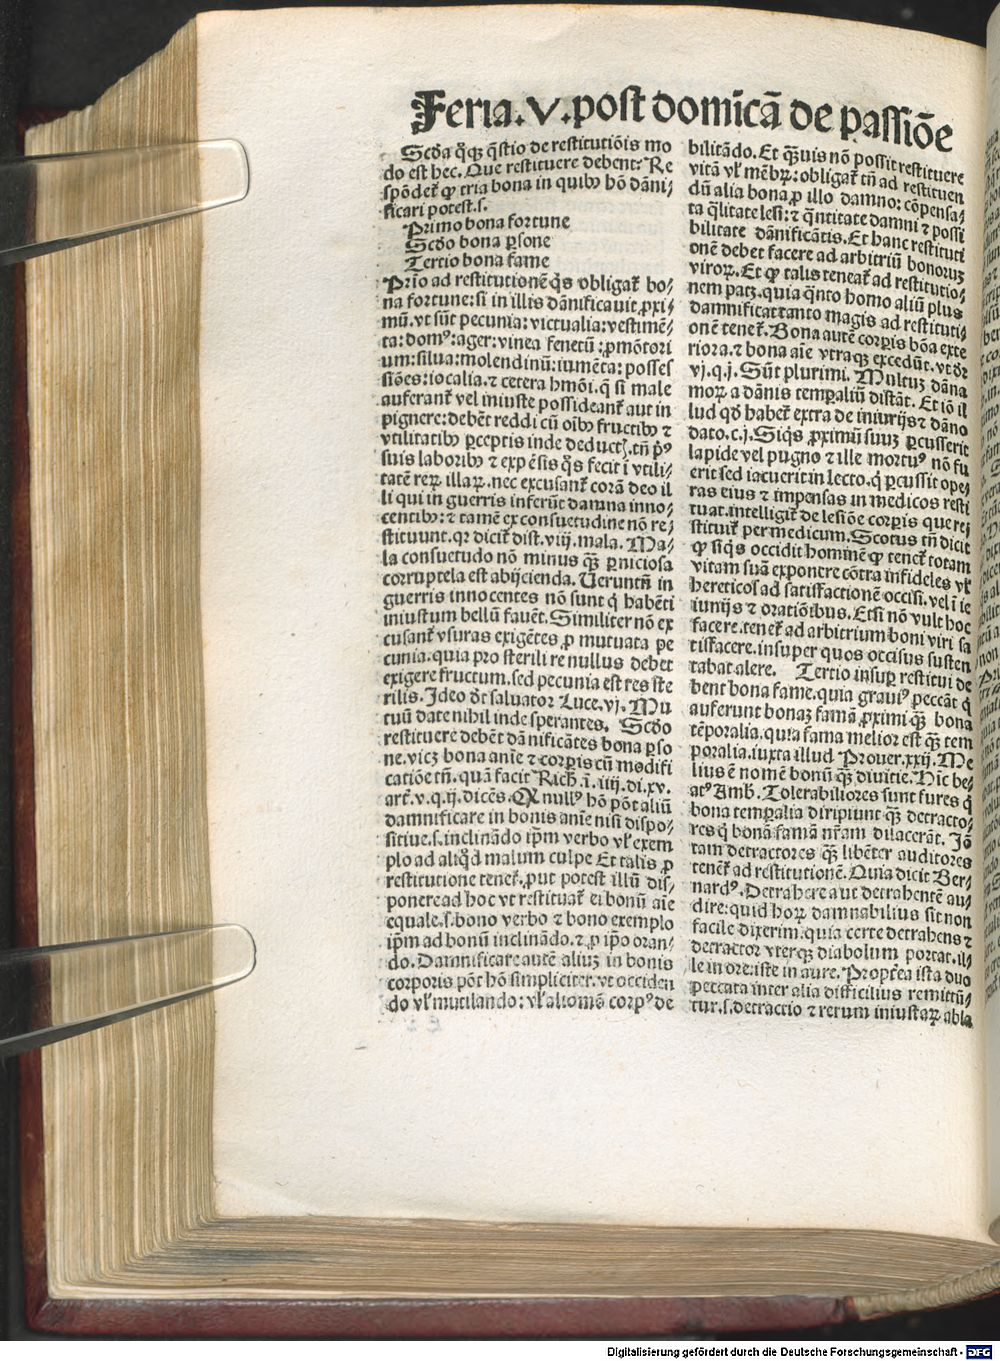 Feria.V.post domīcā de passiōe
Scd̄a q̄q̨ q̄stio de restitutiōis mo
do est hec. Que restituere debent. Re
spōdet̄ ꝙ tria bona in quibꝰ hō dāni⸗
ficari potest.s.
Primo bona fortune
Scd̄o bona ꝑsone
Tertio bona fame
Prīo ad restitutionē q̄s obligat̄ bo⸗
na fortune: si in illis dānificauit ꝓxi⸗
mū. vt sūt pecunia: victualia: vestimē⸗
ta: domꝰ: ager: vinea fenetū: ꝓmōtori
um: silua: molendinū: iumēta: posses
siōes: iocalia. ⁊ cetera hmōi. q̄ si male
auferant̄ vel iniuste possideant̄ aut in
pignere: debēt reddi cū oībꝰ fructibꝰ ⁊
vtilitatibꝰ ꝑceptis inde deductꝭ. tn̄ pꝰ
suis laboribꝰ ⁊ expēsis q̄s fecit ī vtili⸗
tatē reꝝ illaꝝ. nec excusant̄ corā deo il
li qui in guerris inferūt damna inno⸗
centibꝰ: ⁊ tamē ex consuetudine nō re⸗
stituunt. qꝛ dicit̄ dist. viij. mala. Ma⸗
la consuetudo nō minus q̄ꝫ ꝑniciosa
corruptela est abijcienda. Ueruntn̄ in
guerris innocentes nō sunt q̇ habēti
iniustum bellū fauēt. Similiter nō ex
cusant̄ vsuras exigētes ꝓ mutuata pe
cunia. quia pro sterili re nullus debet
exigere fructum. sed pecunia est res ste
rilis. Ideo dr̄ saluator Luce. vj. Mu
tuū date nihil inde sperantes. Scd̄o
restituere debēt dānificātes bona ꝑso
ne. vicꝫ bona anīe ⁊ corꝑis cū modifi
catiōe tn̄. quā facit Rich. ī. iiij. di. xv.
art̄. v. q. ij. dicēs. Q nullꝰ hō pōt aliū
damnificare in bonis anīe nisi dispo⸗
sitiue. s. inclinādo ip̄m verbo vl̄ exem
plo ad aliq̇d malum culpe Et talis ꝓ
restitutione tenet̄. ꝓut potest illū dis⸗
ponere ad hoc vt restituat̄ ei bonū aīe
equale. s. bono verbo ⁊ bono exemplo
ip̄m ad bonū inclinādo. ⁊ ꝓ ip̄o oran⸗
do. Damnificare autē aliuꝫ in bonis
corporis pōt hō simpliciter. vt occiden
do vl̄ mutilando: vl̄ alio mō corpꝰ de
bilitādo. Et q̄ꝫuis nō possit restituere
vitā vl̄ mēbꝝ: obligat̄ tn̄ ad restituen
dū alia bona ꝓ illo damno: cōpensa⸗
ta q̄litate lesi: ⁊ q̄ntitate damni ⁊ possi
bilitate dānificātis. Et hanc restituti
onē debet facere ad arbitriū bonoruꝫ
viroꝝ. Et ꝙ talis teneat̄ ad restitutio⸗
nem patꝫ. quia q̄nto homo aliū plus
damnificat tanto magis ad restituti⸗
onē tenet̄. Bona autē corꝑis bōa exte
riora. ⁊ bona aīe vtraq̨ excedūt. vt dr̄
vj. q. j. Sūt plurimi. Multuꝫ dāna
moꝝ a dānis temꝑaliū distāt. Et iō il
lud qd̄ habet̄ extra de iniurijs ⁊ dāno
dato. c. j. Siq̄s ꝓximū suuꝫ ꝑcusserit
lapide vel pugno ⁊ ille mortuꝰ nō fu
erit sed iacuerit in lecto. q̇ ꝑcussit ope⸗
ras eius ⁊ impensas in medicos resti
tuat. intelligit̄ de lesiōe corꝑis que re⸗
stituit̄ per medicum. Scotus tn̄ dicit
ꝙ siq̄s occidit hominē ꝙ tenet̄ totam
vitam suā exponere cōtra infideles vl̄
hereticos ad satisfactionē occisi. vel ī ie
iunijs ⁊ oratiōibus. Etsi nō vult hoc
facere. tenet̄ ad arbitrium boni viri sa
tisfacere. insuper quos occisus susten
tabat alere. Tertio insuꝑ restitui de
bent bona fame. quia grauiꝰ peccāt q̇
auferunt bonaꝫ famā ꝓximi q̄ꝫ bona
tēporalia. quia fama melior est q̄ꝫ tem
poralia. iuxta illud Prouer. xxij. Me
lius ē nomē bonū q̄ꝫ diuitie. Hīc be⸗
atꝰ Amb. Tolerabiliores sunt fures q̇
bona temꝑalia diripiunt q̄ꝫ detracto⸗
res q̇ bonā famā nr̄am dilacerāt. Iō
tam detractores q̄ꝫ libēter auditores
tenēt̄ ad restitutionē. Quia dicit Ber⸗
nardꝰ. Detrahere aut detrahentē au⸗
dire: quid hoꝝ damnabilius sit non
facile dixerim. quia certe detrahens ⁊
detractor vterq̨ diabolum portat. il⸗
le in ore: iste in aure. Propt̄ea ista duo
peccata inter alia difficilius remittū⸗
tur. s. detractio ⁊ rerum iniustaꝝ abla
Digitalisierung gefördert durch die Deutsche Forschungsgemeinschaft - DFG